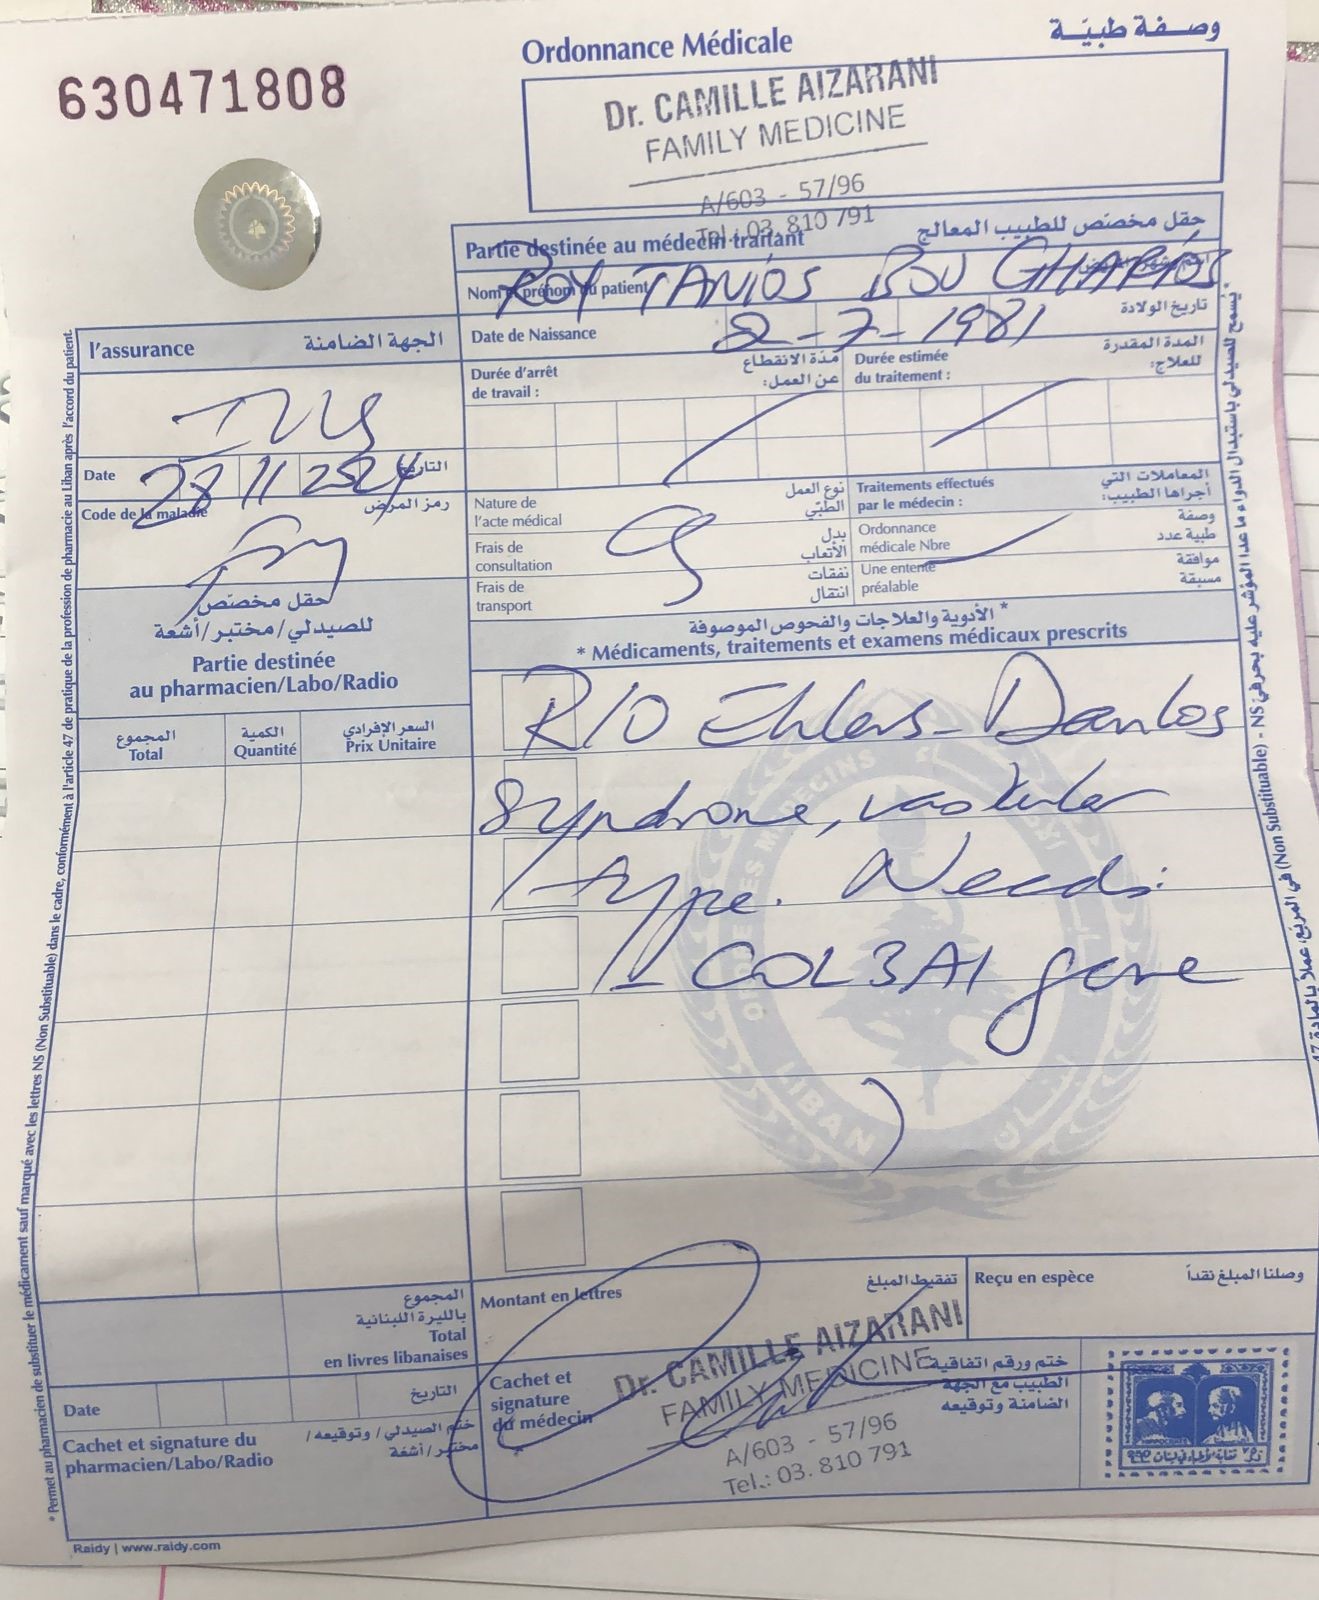 630471808
Ordonnance Médicale
وصفة طبيّة
Dr. CAMILLE AIZARANI
FAMILY MEDICINE
A/603 - 57/96
Tel.: 03. 810 791
Partie destinée au médecin traitant
حقل مخصّص للطبيب المعالج
Nom et prénom du patient
ROY TANIOS BOU GHARIOS
Date de Naissance
2-7-1981
تاريخ الولادة
l'assurance
الجهة الضامنة
Durée d'arrêt
de travail :
مدّة الانقطاع
عن العمل:
Durée estimée
du traitement :
المدة المقدرة
للعلاج:
Date
28 11 2024
التاريخ
Code de la maladie
رمز المرض
Nature de
l'acte médical
نوع العمل
الطبّي
Traitements effectués
par le médecin :
المعاملات التي
أجراها الطبيب:
Frais de
consultation
بدل
الأتعاب
Ordonnance
médicale Nbre
وصفة
طبية عدد
Frais de
transport
نفقات
انتقال
Une entente
préalable
موافقة
مسبقة
حقل مخصّص
للصيدلي/مختبر/أشعة
Partie destinée
au pharmacien/Labo/Radio
* الأدوية والعلاجات والفحوص الموصوفة
* Médicaments, traitements et examens médicaux prescrits
المجموع
Total
الكمية
Quantité
السعر الإفرادي
Prix Unitaire
R/O Ehlers-Danlos
Syndrome, vascular
type. Needs:
COL3A1 gene
ORDRE DES MÉDECINS
LIBAN
المجموع
بالليرة اللبنانية
Total
en livres libanaises
Montant en lettres
تفقيط المبلغ
Reçu en espèce
وصلنا المبلغ نقداً
Date
التاريخ
Cachet et signature du
pharmacien/Labo/Radio
ختم الصيدلي/وتوقيعه/
مختبر/أشعة
Cachet et
signature
du médecin
Dr. CAMILLE AIZARANI
FAMILY MEDICINE
A/603 - 57/96
Tel.: 03. 810 791
ختم ورقم اتفاقية
الطبيب مع الجهة
الضامنة وتوقيعه
Raidy | www.raidy.com
* Permet au pharmacien de substituer le médicament sauf marqué avec les lettres NS (Non Substituable) dans le cadre, conformément à l'article 47 de pratique de la profession de pharmacie au Liban après l'accord du patient.
* يُسمح للصيدلي باستبدال الدواء ما عدا المؤشر عليه بحرفي NS - (Non Substituable) في المربّع، عملاً بالمادة 47